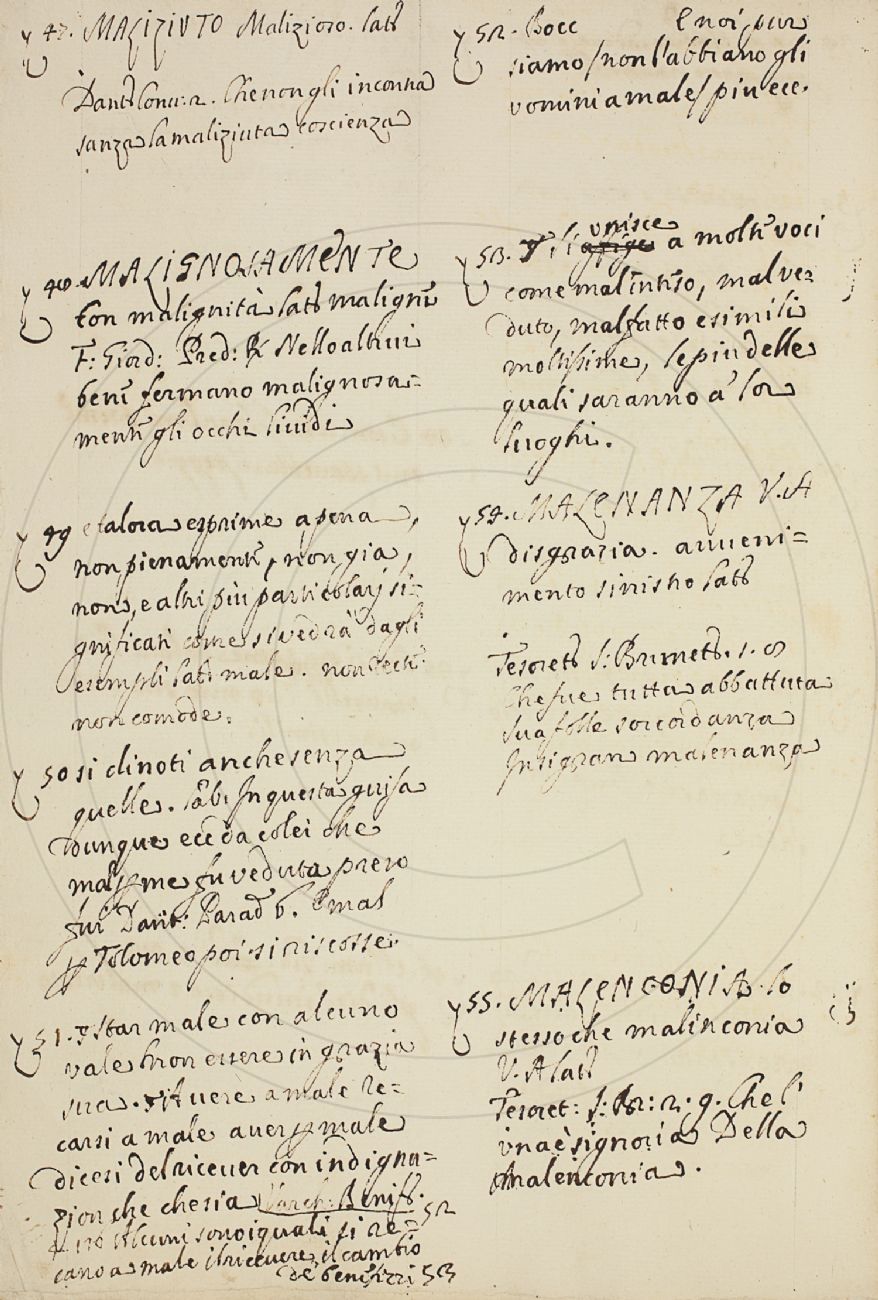 47. MALIZIUTO Malizioso. lat.
Dant. Conv. 2. Che non gli incontra
sanza la maliziuta coscienza
48. MALIGNOSAMENTE
Con malignità lat. maligne
F: Giord: Pred: R Nello altrui
bene fermano malignosa=
mente gli occhi lividi
49 e talora esprime a pena,
non pienamente, non gia,
non, e altri piu particolarj si=
gnificati come si vedrà dagli
esempli lat. male. non recte.
non comode.
50 si dinoti anche senza
quelle. Lab. In questa guisa
dunque ecc da colei che
mal p me fu veduta preso
fui Dant: Parad 6. E mal
p Tolomeo poi si riscosse.
51. Star male con alcuno
vale non essere in grazia
sua. Avere a male re=
carsi a male aver p male
dicesi del ricever con indigna=
zion che che sia Varch: Benif.
Alcuni sono i quali si re= 52
cano a male il ricevere il cambio
de benifizzi 53
52. Bocc E noi pur
siamo/non l'abbiano gli
vomini a male/piu ecc.
53. Si unisce a molte voci
come mal inteso, mal ve=
duto, malfatto e simili
moltissime, le piu delle
quali saranno a' lor
luoghi.
54. MALENANZA V. A
disgrazia. avveni=
mento sinistro lat.
Tesorett. S: Brunett. 1. 8
Che fue tutta abbattuta
sua folle sorcordanza
In sigran malenanza
55. MALENCONIA. lo
stesso che malinconia
V. A lat.
Tesoret: S: Br: 2. 9. Che l'
una è signoria Della
Malenconia.